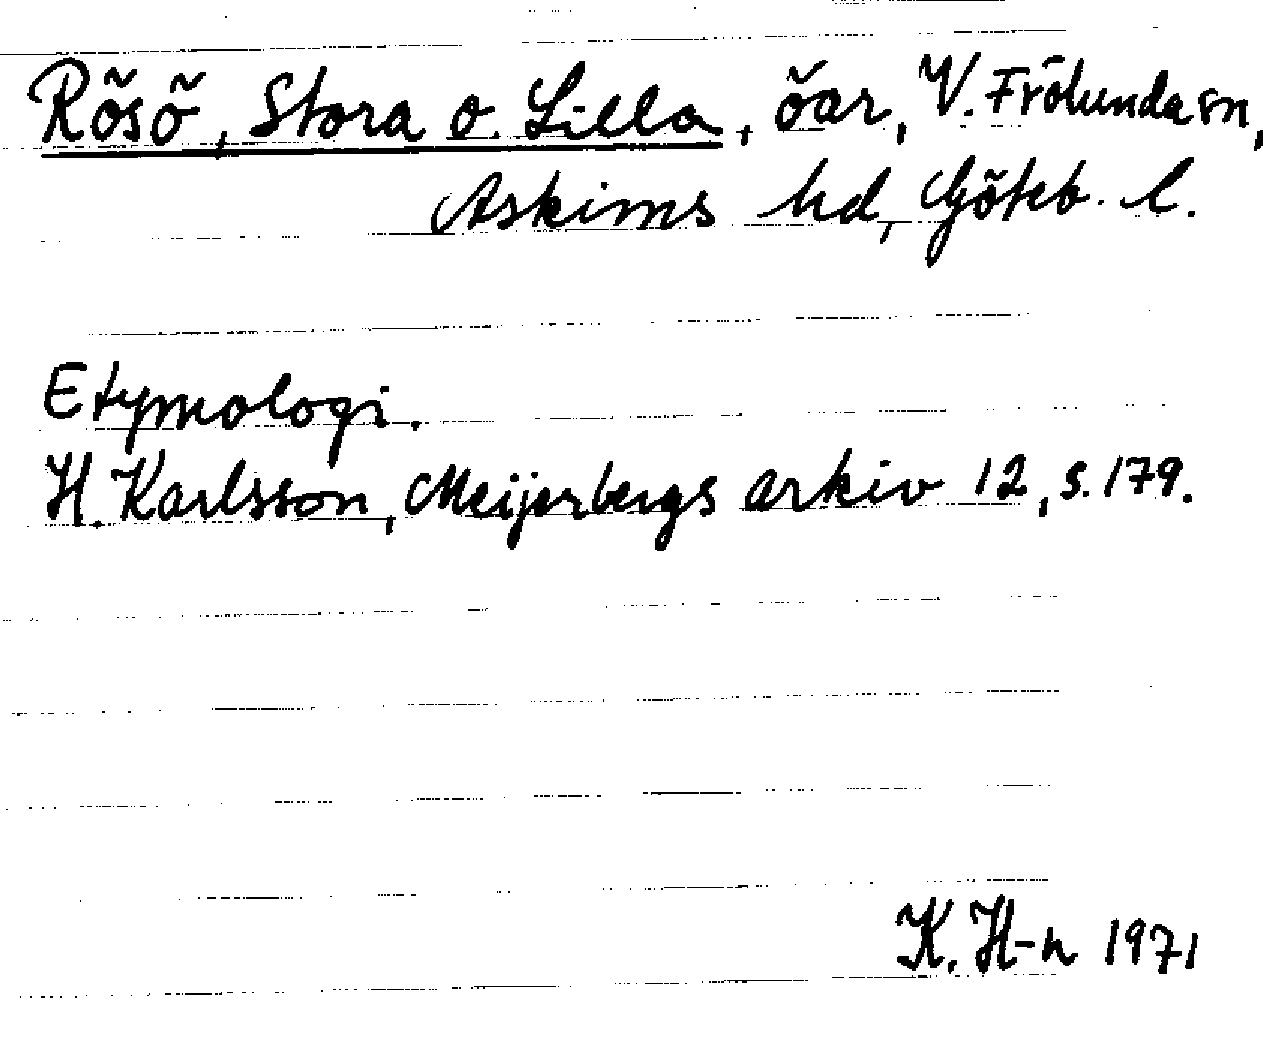 Rösö, Stora o. Lilla, öar, V. Frölunda sn,
Askims hd, Göteb. l.
Etymologi.
H. Karlsson, Meijerbergs arkiv 12, s. 179.
K. H-n 1971